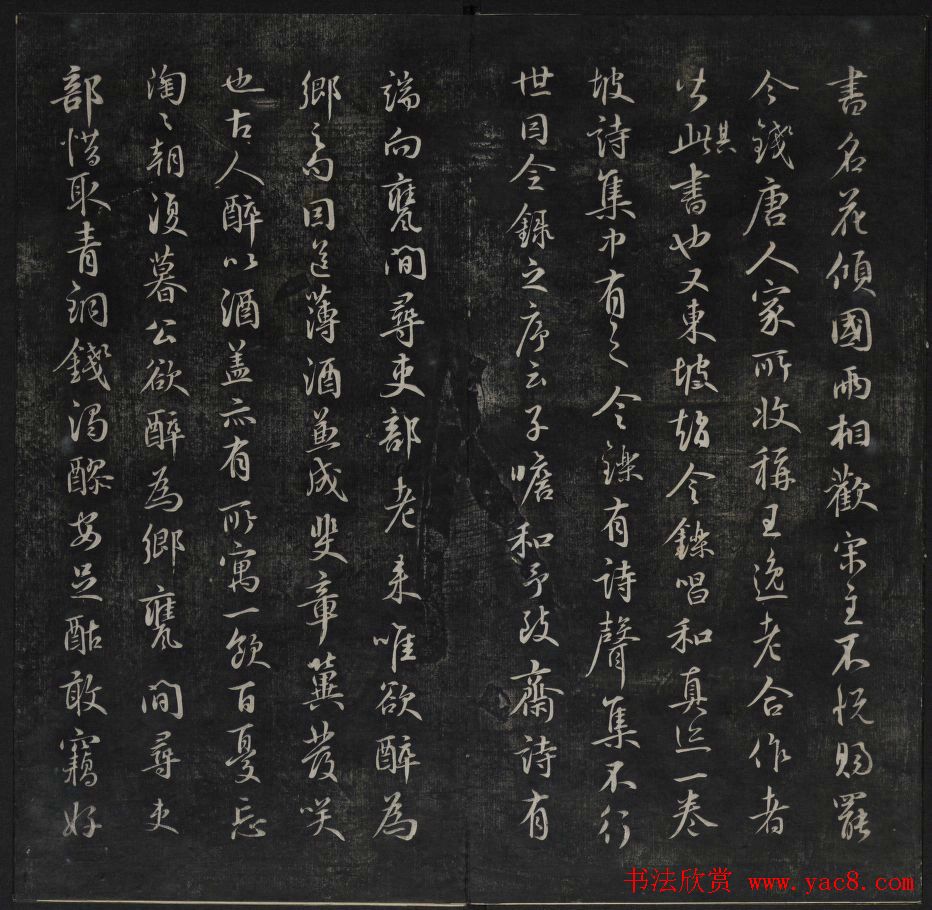 書名花傾國兩相歡宋主不悅賜罷
今錢唐人家所收稱王逸老合作者
皆此其書也又東坡趙令鑠唱和真迹一卷
坡詩集中有之令鑠有詩聲集不行
世因令錄之序云子瞻和予致齋詩有
端向甕間尋吏部老來唯欲醉為
鄉之句因送薄酒並成斐章冀發咲
也古人醉以酒蓋亦有所寓一飲百憂忘
陶〻朝復暮公欲醉為鄉甕間尋吏
部惜取青銅錢濁醪安足酤敢竊好
书法欣赏 www.yac8.com